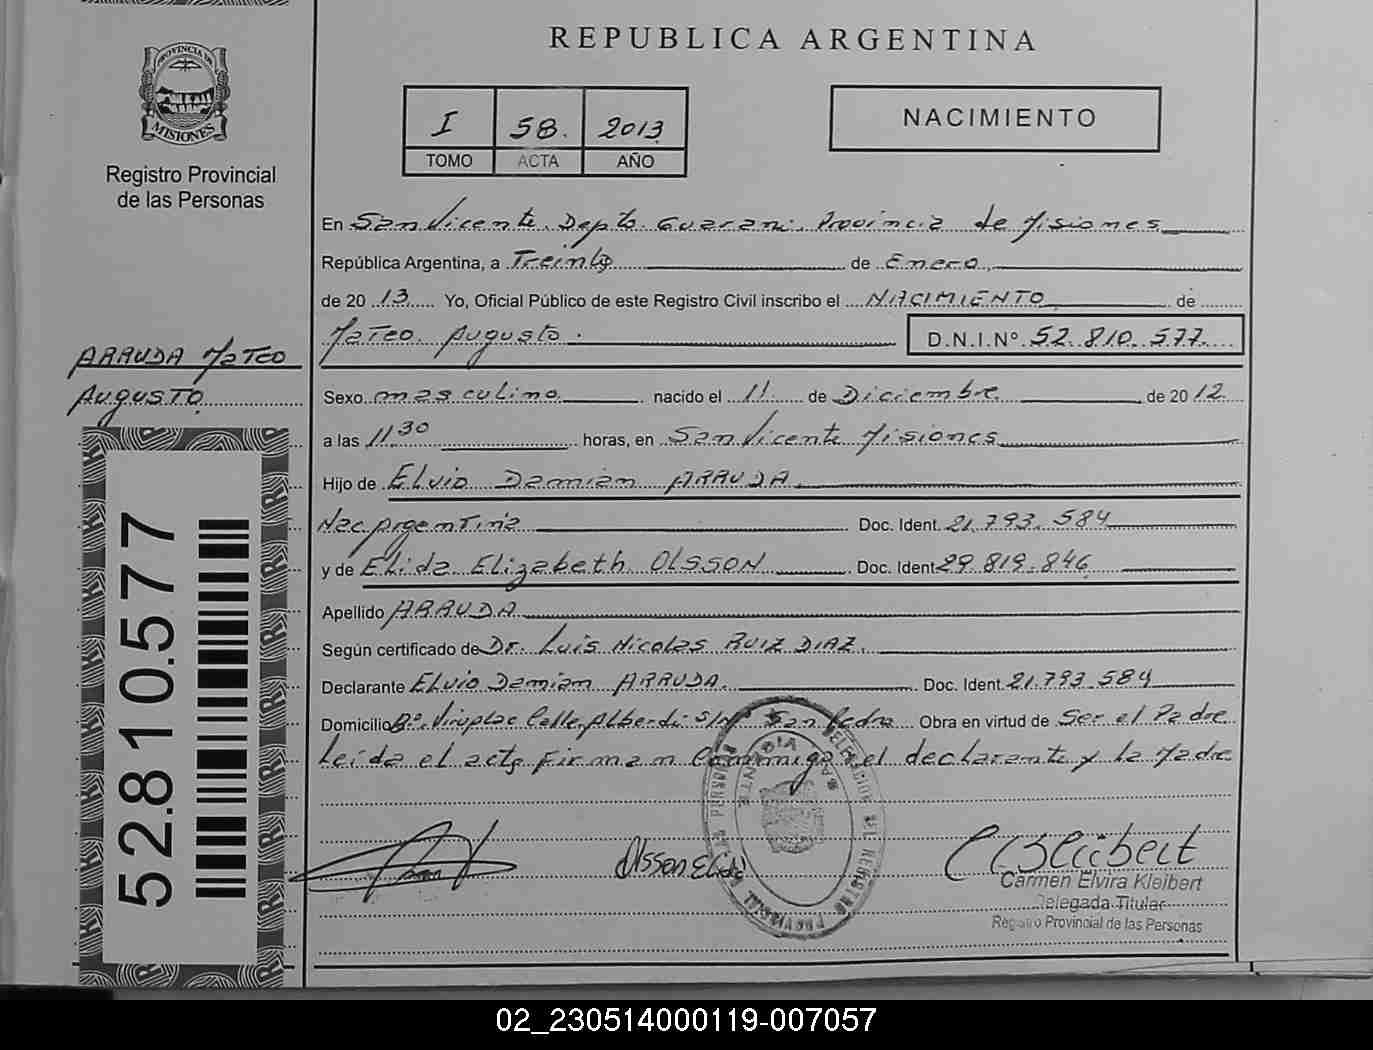 REPUBLICA ARGENTINA
PROVINCIA DE
MISIONES
Registro Provincial
de las Personas
I 58. 2013
TOMO ACTA AÑO
NACIMIENTO
En San Vicente. Depto. Guarani. Provincia de Misiones
República Argentina, a Treinta de Enero
de 20 13 Yo, Oficial Público de este Registro Civil inscribo el NACIMIENTO de
Mateo Augusto. D.N.I.Nº 52.810.577
ARRUDA Mateo
Augusto
Sexo masculino nacido el 11 de Diciembre de 2012
a las 11 30 horas, en San Vicente Misiones
Hijo de Elvio Damian ARRUDA.
Nac. Argentina Doc. Ident. 21.793.584
y de Elida Elizabeth OLSSON Doc. Ident 29.819.846
Apellido ARRUDA
Según certificado de Dr. Luis Nicolas RUIZ DIAZ.
Declarante Elvio Damian ARRUDA. Doc. Ident. 21.793.584
Domicilio Bº. Viruplac Calle Alberdi S/Nº San Pedro Obra en virtud de Ser el Padre
Leida el acta Firman Conmigo el declarante y la Madre
52.810.577
Olsson Elida
Carmen Elvira Kleibert
Delegada Titular
Registro Provincial de las Personas
DELEGACION DEL REGISTRO PROVINCIAL DE LAS PERSONAS
02_230514000119-007057